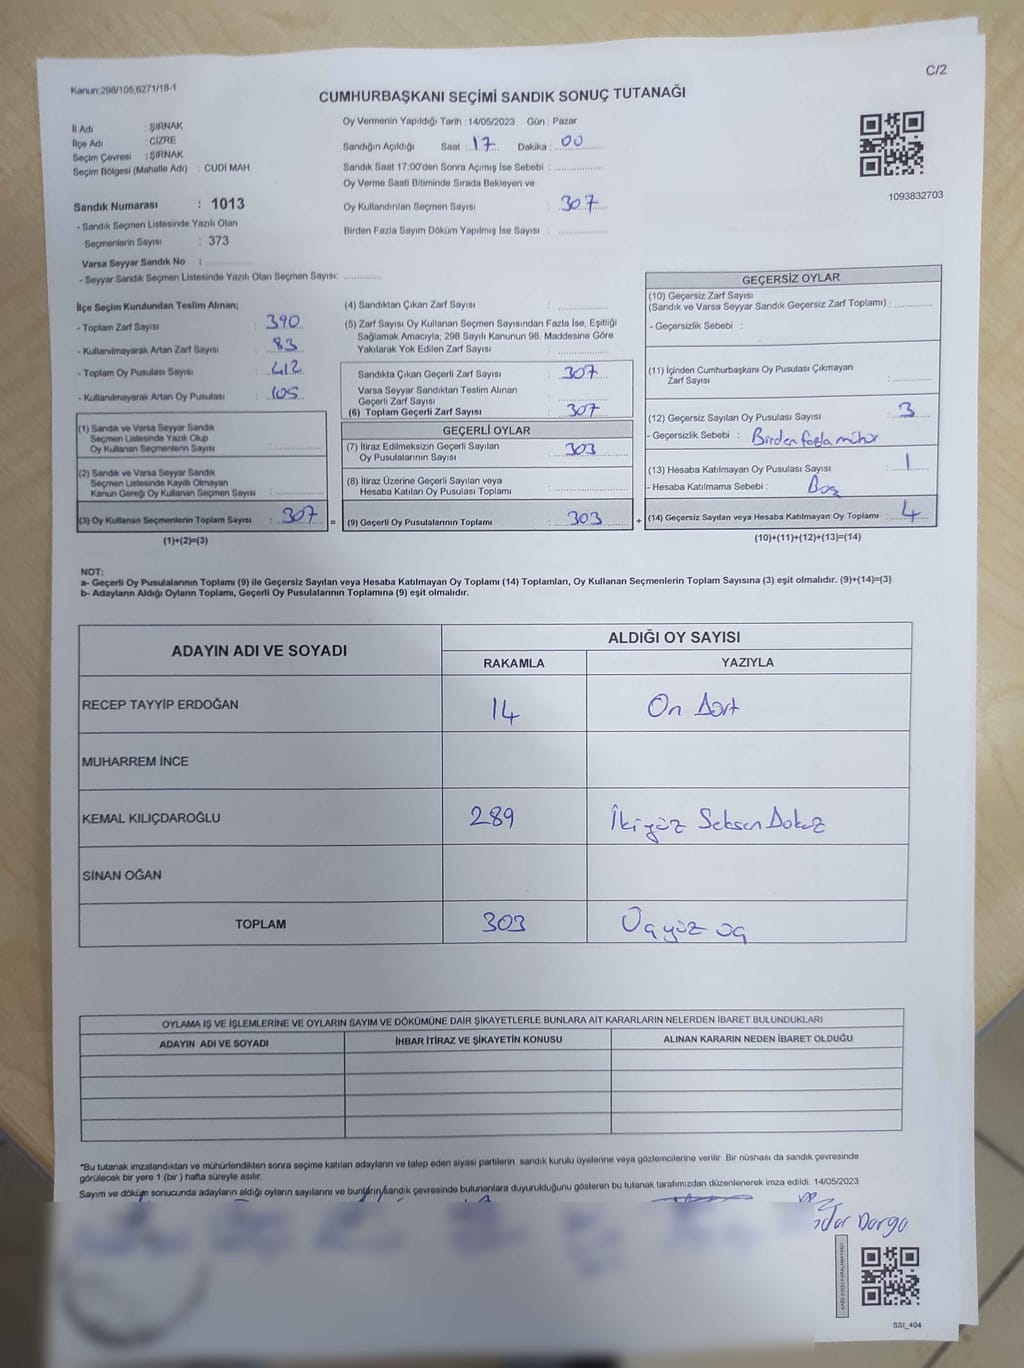 C/2
Kanun:298/105,6271/18-1
CUMHURBAŞKANI SEÇİMİ SANDIK SONUÇ TUTANAĞI
İl Adı : ŞIRNAK
İlçe Adı : CİZRE
Seçim Çevresi : ŞIRNAK
Seçim Bölgesi (Mahalle Adı) : CUDİ MAH.
Sandık Numarası : 1013
- Sandık Seçmen Listesinde Yazılı Olan
Seçmenlerin Sayısı : 373
Varsa Seyyar Sandık No :
- Seyyar Sandık Seçmen Listesinde Yazılı Olan Seçmen Sayısı:
Oy Vermenin Yapıldığı Tarih : 14/05/2023 Gün : Pazar
Sandığın Açıldığı Saat : 17 Dakika : 00
Sandık Saat 17:00'den Sonra Açımış İse Sebebi :
Oy Verme Saati Bitiminde Sırada Bekleyen ve
Oy Kullandırılan Seçmen Sayısı : 307
Birden Fazla Sayım Döküm Yapılmış İse Sayısı :
1093832703
İlçe Seçim Kurulundan Teslim Alınan;
- Toplam Zarf Sayısı : 390
- Kullanılmayarak Artan Zarf Sayısı : 83
- Toplam Oy Pusulası Sayısı : 412
- Kullanılmayarak Artan Oy Pusulası : 105
(1) Sandık ve Varsa Seyyar Sandık
Seçmen Listesinde Yazılı Olup
Oy Kullanan Seçmen Sayısı :
(2) Sandık ve Varsa Seyyar Sandık
Seçmen Listesinde Kayıtlı Olmayan
Kanun Gereği Oy Kullanan Seçmen Sayısı :
(3) Oy Kullanan Seçmenlerin Toplam Sayısı : 307
(1)+(2)=(3)
(4) Sandıktan Çıkan Zarf Sayısı :
(5) Zarf Sayısı Oy Kullanan Seçmen Sayısından Fazla İse, Eşitliği
Sağlamak Amacıyla; 298 Sayılı Kanunun 98. Maddesine Göre
Yakılarak Yok Edilen Zarf Sayısı :
Sandıkta Çıkan Geçerli Zarf Sayısı : 307
Varsa Seyyar Sandıktan Teslim Alınan
Geçerli Zarf Sayısı :
(6) Toplam Geçerli Zarf Sayısı : 307
GEÇERLİ OYLAR
(7) İtiraz Edilmeksizin Geçerli Sayılan
Oy Pusulalarının Sayısı : 303
(8) İtiraz Üzerine Geçerli Sayılan veya
Hesaba Katılan Oy Pusulası Toplamı :
= (9) Geçerli Oy Pusulalarının Toplamı : 303 +
GEÇERSİZ OYLAR
(10) Geçersiz Zarf Sayısı
(Sandık ve Varsa Seyyar Sandık Geçersiz Zarf Toplamı) :
- Geçersizlik Sebebi :
(11) İçinden Cumhurbaşkanı Oy Pusulası Çıkmayan
Zarf Sayısı :
(12) Geçersiz Sayılan Oy Pusulası Sayısı : 3
- Geçersizlik Sebebi : Birden fazla mühür
(13) Hesaba Katılmayan Oy Pusulası Sayısı : 1
- Hesaba Katılmama Sebebi : Boş
(14) Geçersiz Sayılan veya Hesaba Katılmayan Oy Toplamı : 4
(10)+(11)+(12)+(13)=(14)
NOT:
a- Geçerli Oy Pusulalarının Toplamı (9) ile Geçersiz Sayılan veya Hesaba Katılmayan Oy Toplamı (14) Toplamları, Oy Kullanan Seçmenlerin Toplam Sayısına (3) eşit olmalıdır. (9)+(14)=(3)
b- Adayların Aldığı Oyların Toplamı, Geçerli Oy Pusulalarının Toplamına (9) eşit olmalıdır.
ADAYIN ADI VE SOYADI ALDIĞI OY SAYISI
RAKAMLA YAZIYLA
RECEP TAYYİP ERDOĞAN 14 On Dört
MUHARREM İNCE
KEMAL KILIÇDAROĞLU 289 İkiyüz Seksen Dokuz
SİNAN OĞAN
TOPLAM 303 Üçyüz üç
OYLAMA İŞ VE İŞLEMLERİNE VE OYLARIN SAYIM VE DÖKÜMÜNE DAİR ŞİKAYETLERLE BUNLARA AİT KARARLARIN NELERDEN İBARET BULUNDUKLARI
ADAYIN ADI VE SOYADI İHBAR İTİRAZ VE ŞİKAYETİN KONUSU ALINAN KARARIN NEDEN İBARET OLDUĞU
"Bu tutanak imzalandıktan ve mühürlendikten sonra seçime katılan adayların ve talep eden siyasi partilerin sandık kurulu üyelerine veya gözlemcilerine verilir. Bir nüshası da sandık çevresinde
görülecek bir yere 1 (bir) hafta süreyle asılır.
Sayım ve döküm sonucunda adayların aldığı oyların sayılarını ve bunların sandık çevresinde bulunanlara duyurulduğunu gösteren bu tutanak tarafımızdan düzenlenerek imza edildi. 14/05/2023
SSI_404